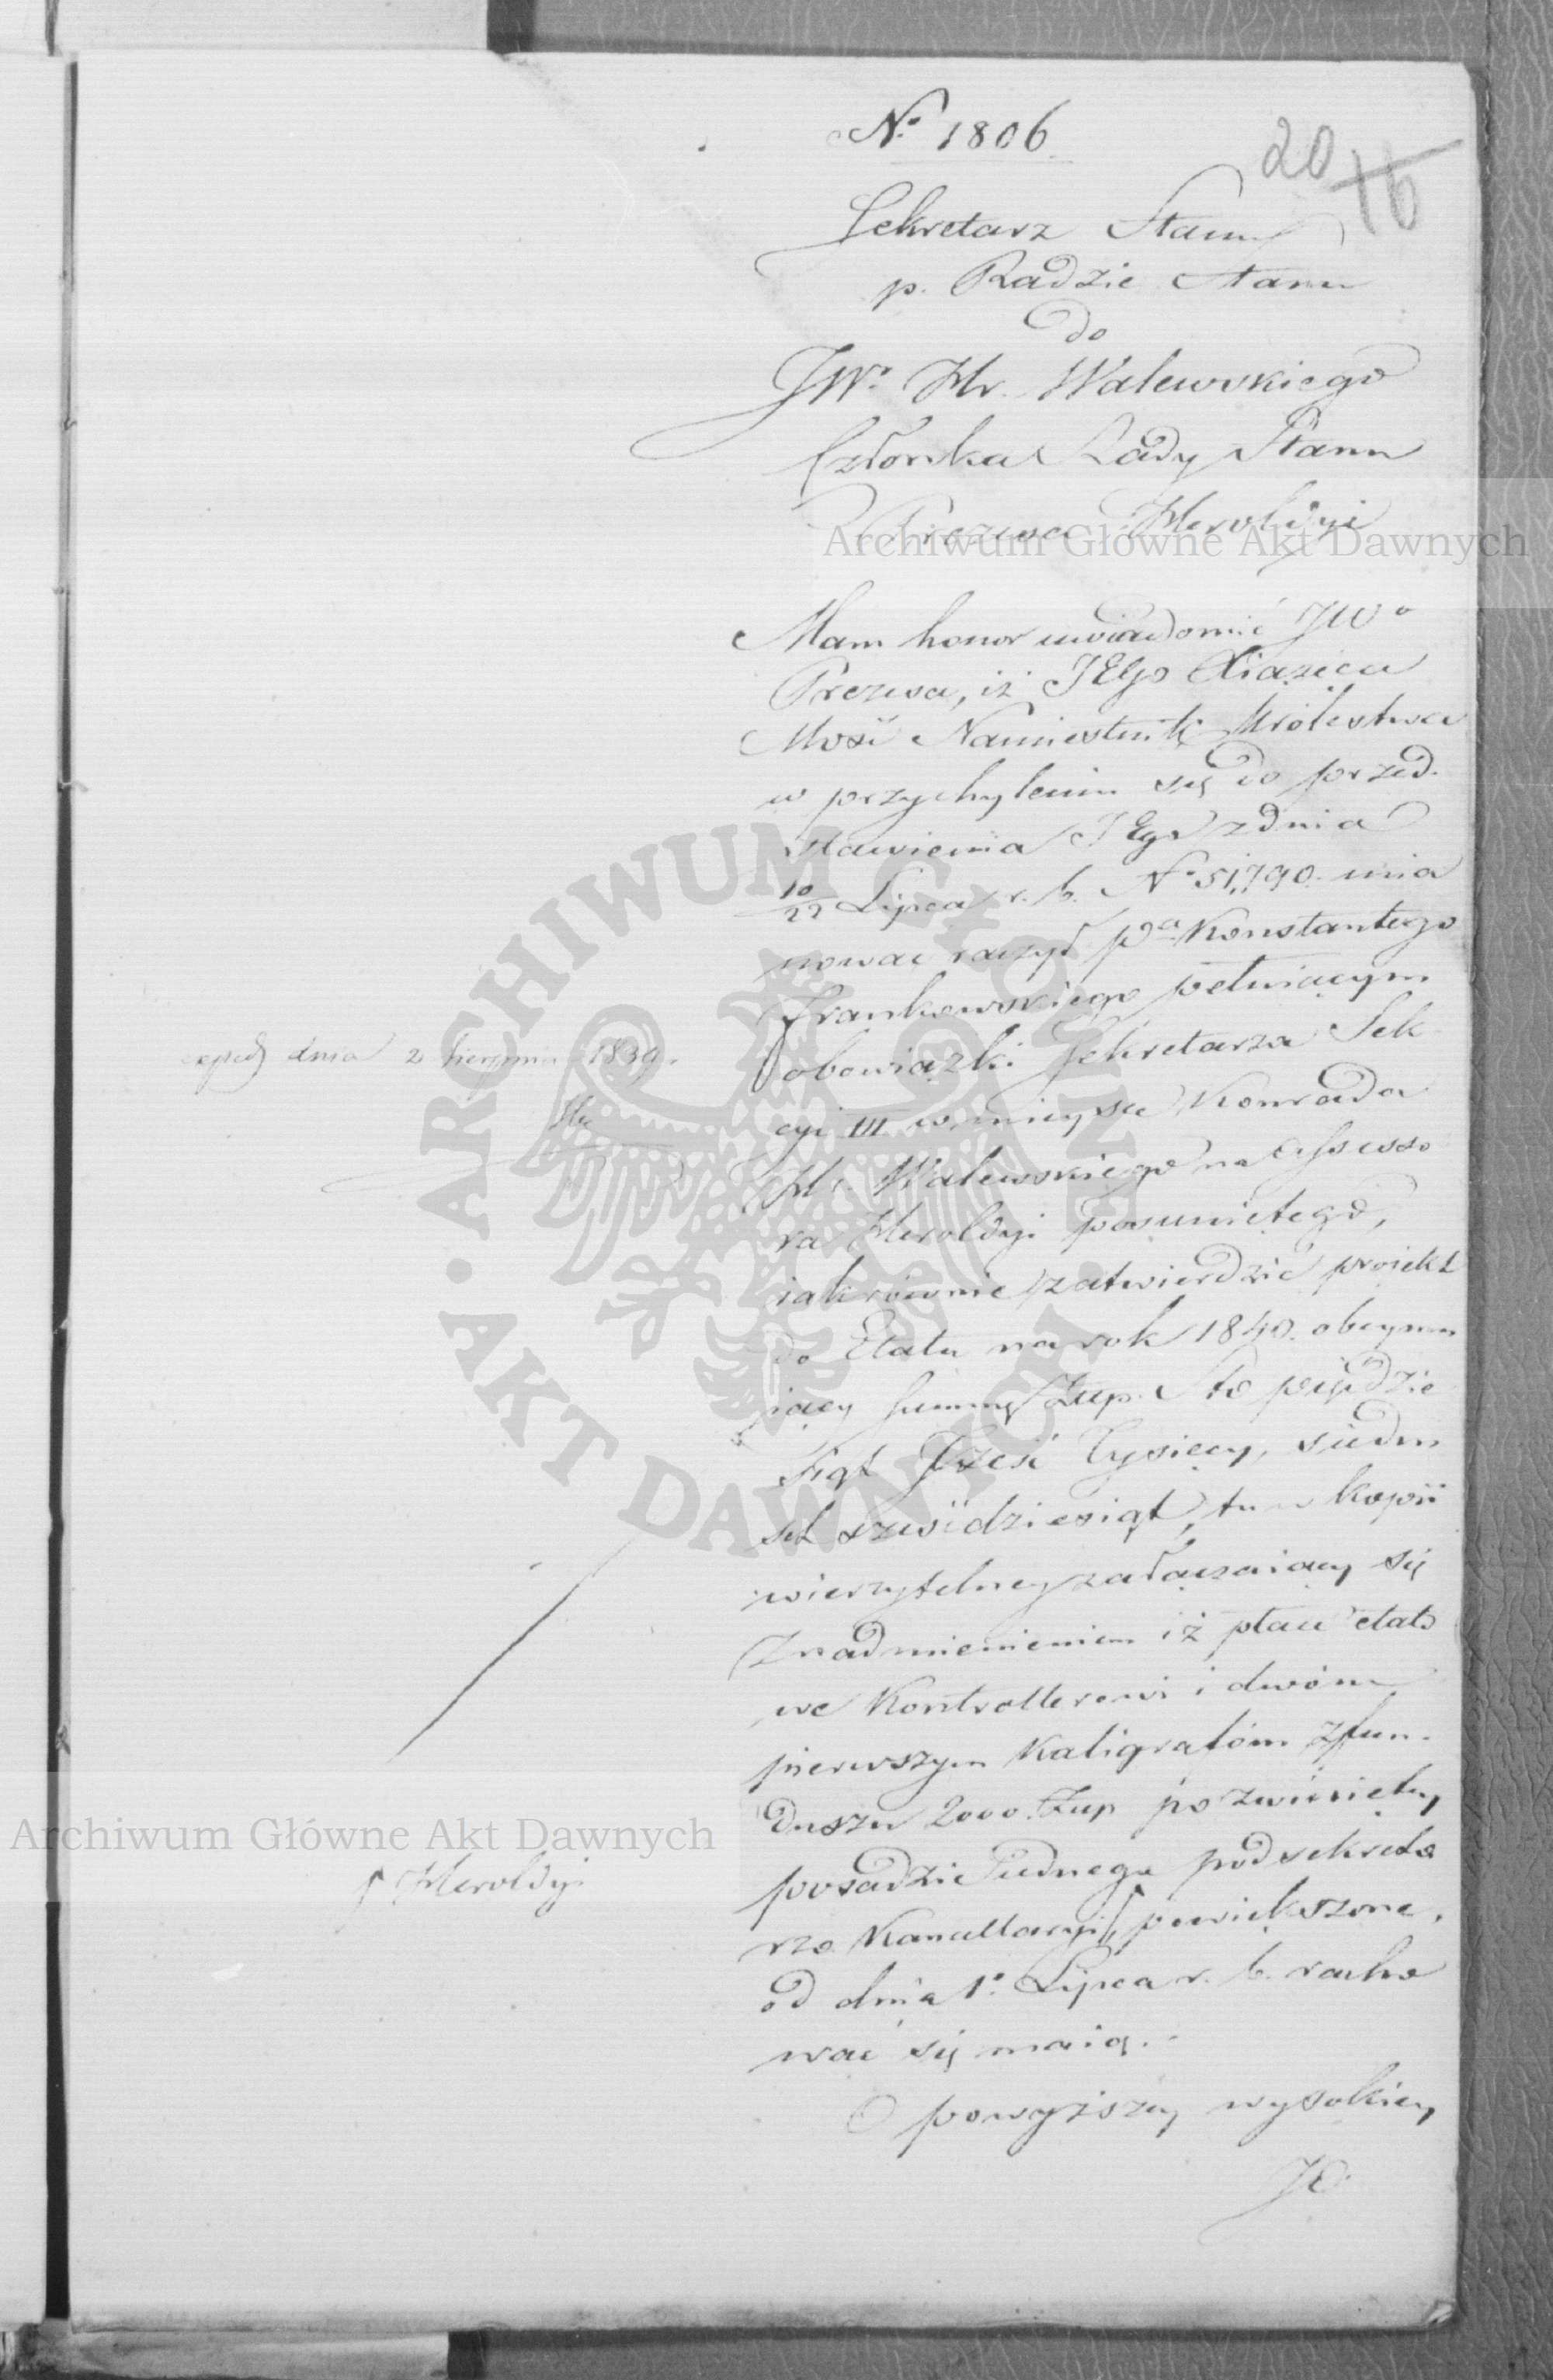 No 1806
20
16
Sekretarz Stanu
p. Radzie Stanu
do
JWo Hr. Walewskiego
Członka Rady Stanu
Prezesa Heroldyi
Archiwum Główne Akt Dawnych
Mam honor uwiadomić JWo
Prezesa, iż JEgo Xiązęca
Mość Namiestnik Królestwa
w przychyleniu się do przed-
stawienia JEgo z dnia
10/22 Lipca r. b. No 51,790. mia
nować raczył Pa Konstantego
Frankowskiego pełniącym
obowiązki Sekretarza Sek-
cyi III w mieysce Konrada
Hr. Walewskiego na Assesso
ra Heroldyi posuniętego,
iak równie zatwierdzić proiekt
do Etatu na rok 1840. obeymu
iący summę Złp. Sto pięćdzie
siąt sześć tysięcy, siedm
set sześćdziesiąt, tu w kopii
wierzytelney załączaiący się
z nadmienieniem iż płace etato
we Kontrollerowi i dwóm
pierwszym Kaligrafóm z fun-
duszu 2000 Złp po zwiniętey
posadzie jednego podsekreta
rza Kancellaryi powiększone,
od dnia 1o Lipca r. b. racho
wać się maią.
O powyższey wysokiey
JO.
exped dnia 2 Sierpnia 1839.
Archiwum Główne Akt Dawnych
Heroldyi
ARCHIWUM GŁÓWNE AKT DAWNYCH